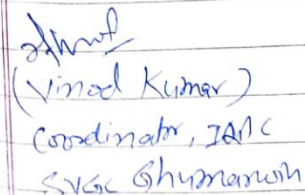 (Vinod Kumar)
Coordinator, IQAC
SVGC Ghumarwin